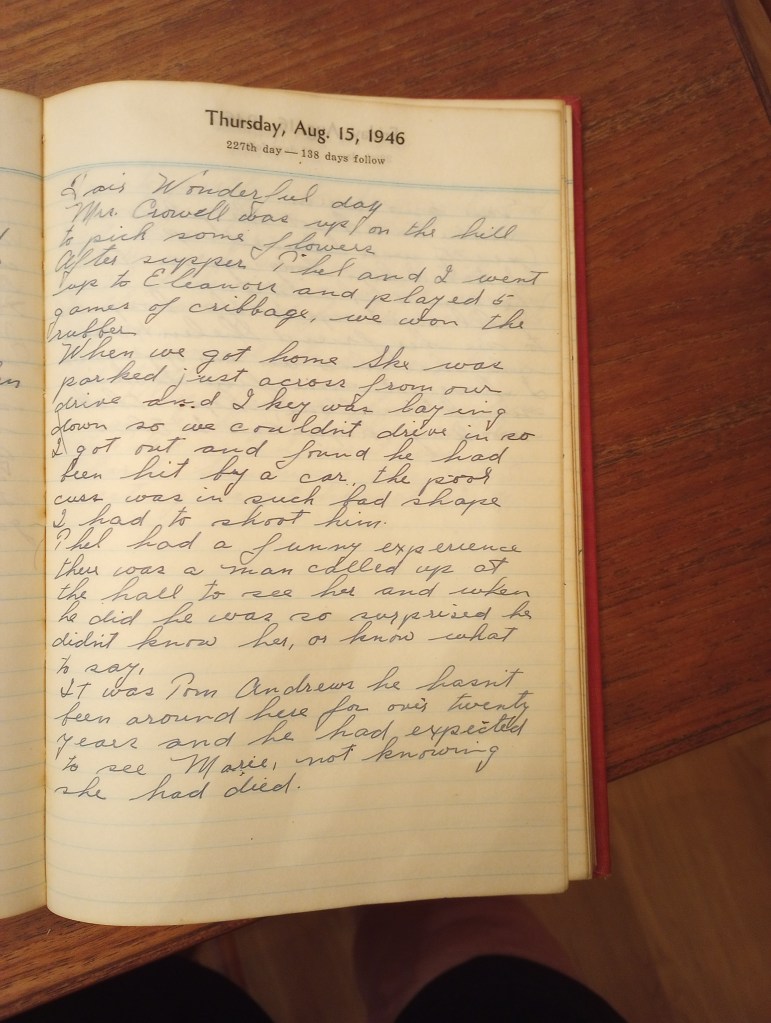 Thursday, Aug. 15, 1946
227th day — 138 days follow
Fair Wonderful day
Mrs. Crowell was up on the hill
to pick some flowers
After supper Phel and I went
up to Eleanors and played 5
games of cribbage, we won the
rubber
When we got home She was
parked just across from our
drive and Ikey was laying
down so we couldn't drive in so
I got out and found he had
been hit by a car, the poor
cuss was in such bad shape
I had to shoot him.
Phel had a funny experience
there was a man called up at
the hall to see her and when
he did he was so surprised he
didn't know her, or know what
to say,
It was Tom Andrews he hasn't
been around here for over twenty
years and he had expected
to see Marie, not knowing
she had died.